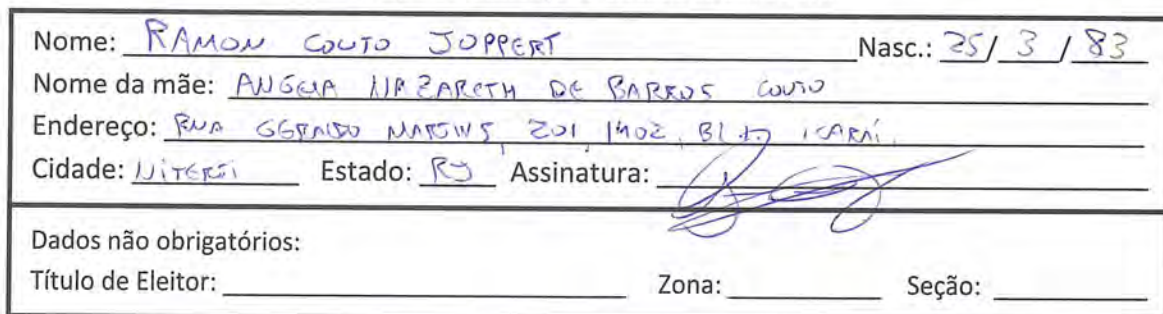 Nome: RAMON COUTO JOPPERT Nasc.: 25/ 3 / 83
Nome da mãe: ANGELA NAZARETH DE BARROS COUTO
Endereço: RUA GERALDO MARTINS, 201, 1402, BL ICARAÍ
Cidade: NITERÓI Estado: RJ Assinatura:
Dados não obrigatórios:
Título de Eleitor: Zona: Seção: